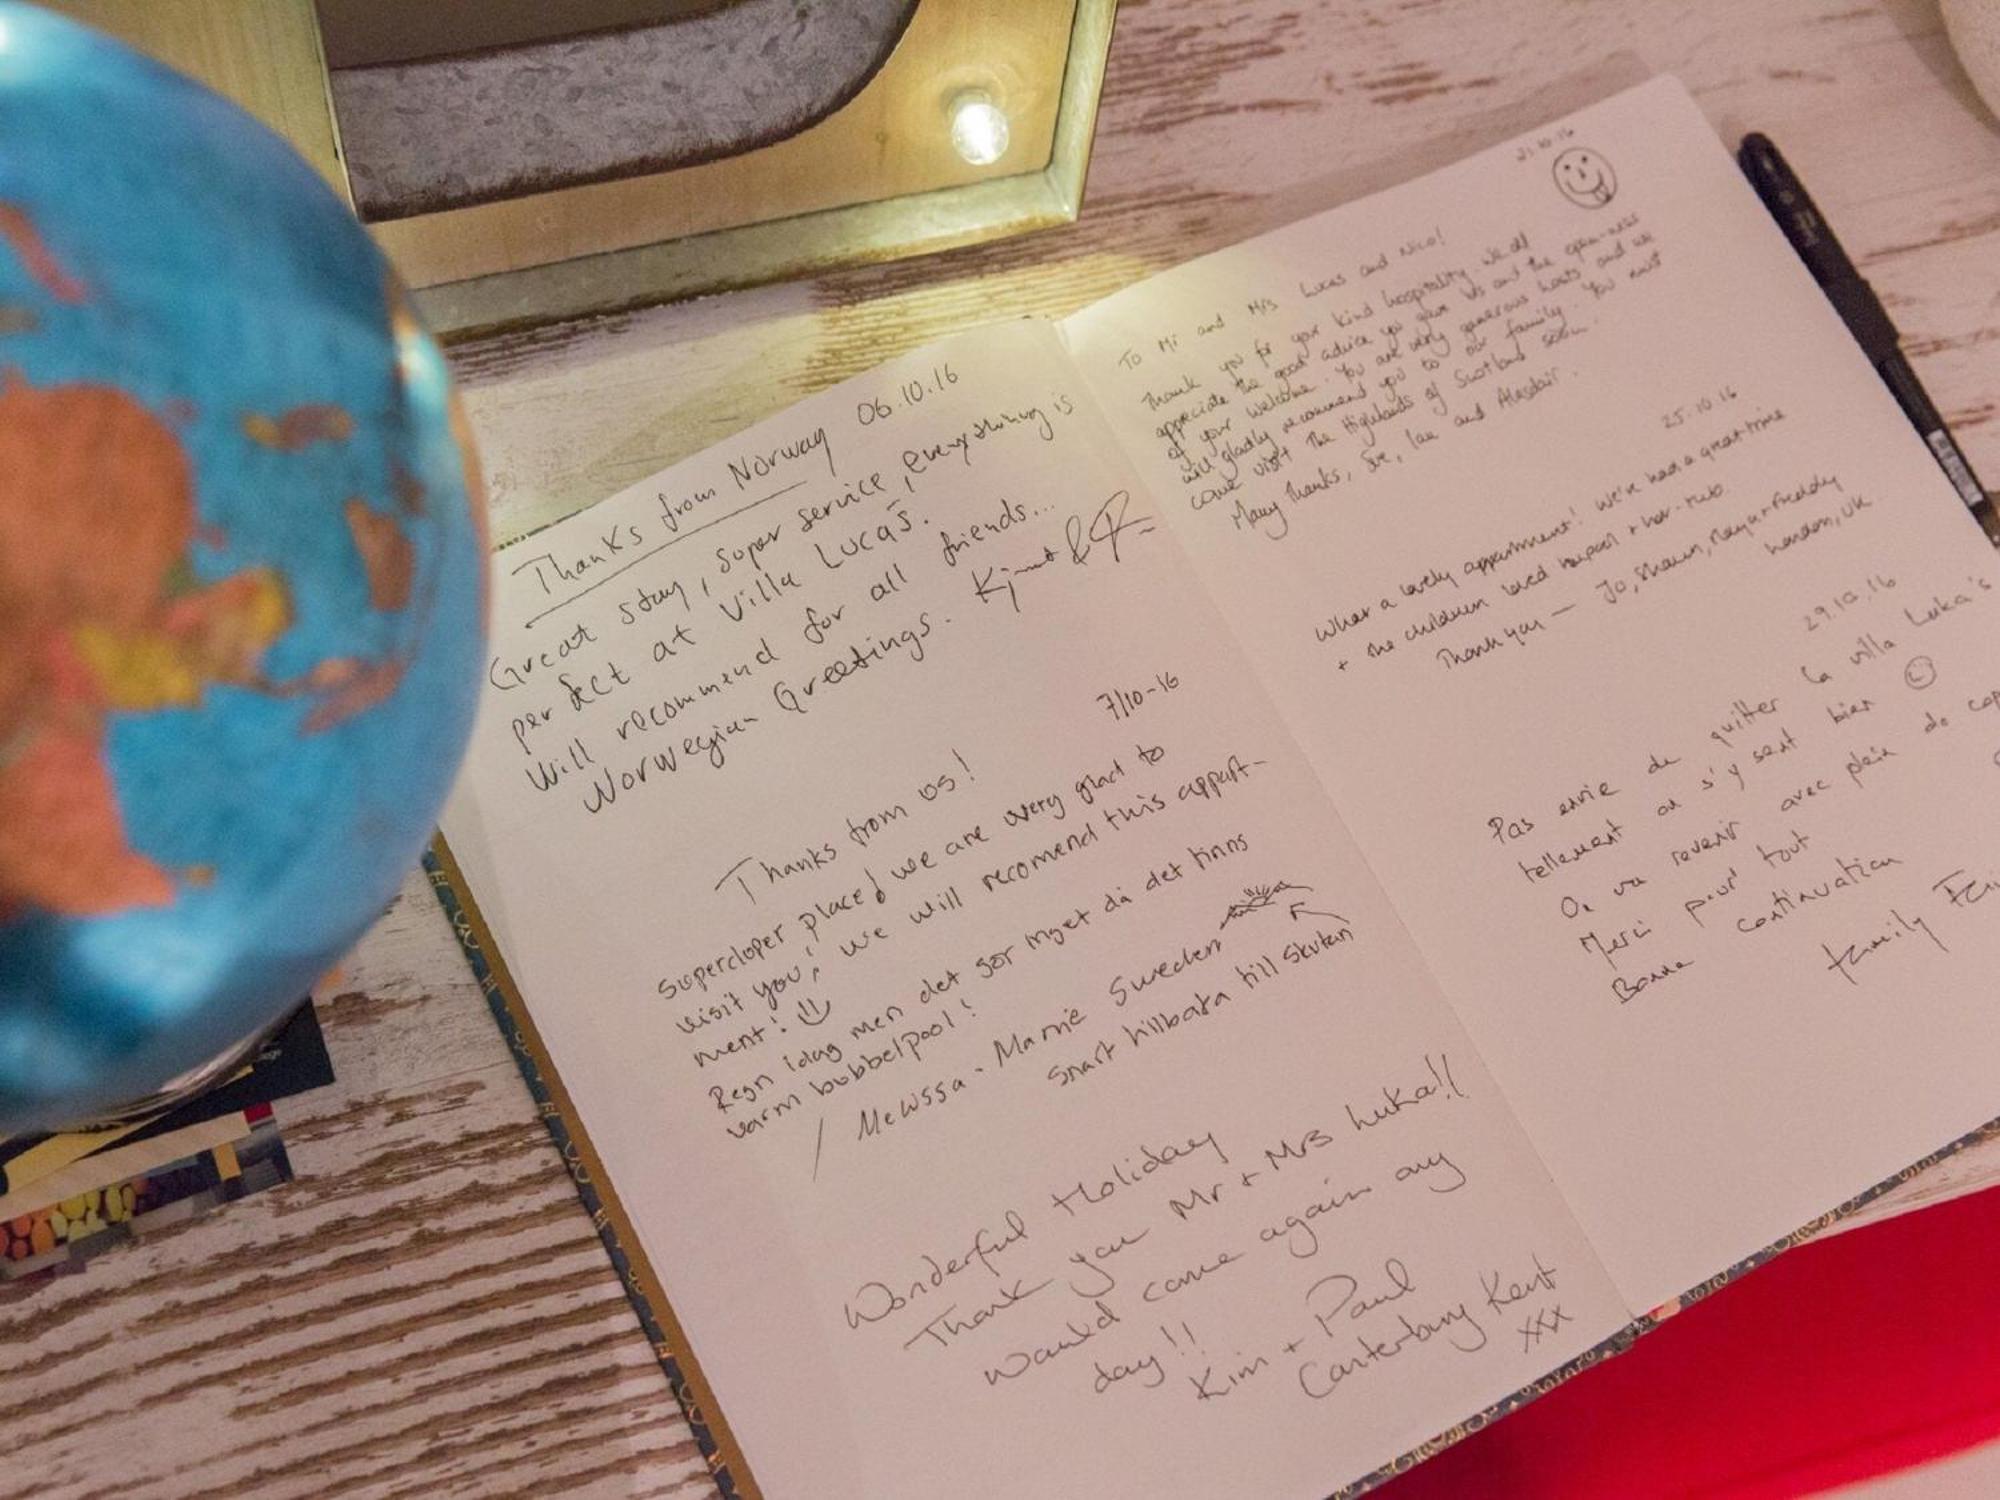 Thanks from Norway 06.10.16
Great stay, super service, everything is
perfect at Villa Lucas.
Will recommend for all friends...
Norwegian Greetings.
7/10-16
Thanks from us!
Supercloper place! we are wery glad to
visit you, we will recomend this appart-
ment!
Regn idag men det gör inget då det finns
varm bubbelpool!
/ Melissa - Marie Sweden
Snart tillbaka till Skutan
Wonderful Holiday
Thank you Mr + Mrs Luka!!
would come again any
day!!
Kim + Paul
Canterbury Kent
xxx
21.10.16
To Mr and Mrs Lucas and Nico!
Thank you for your kind hospitality. We all
appreciate the good advice you gave us and the open-ness
of your welcome. You are very generous hosts and we
will gladly recommend you to our family. You must
come visit the Highlands of Scotland soon.
Many Thanks, Sue, Ian and Alasdair.
25.10.16
What a lovely appartment! We've had a great time
+ the children loved the pool + hot-tub.
Thank you — Jo, Shaun, Maya + Freddy
London, UK
29.10.16
Pas envie de quitter la villa Luka's
tellement on s'y sent bien
On va revenir avec plein de cop
Merci pour tout
Bonne continuation
Family